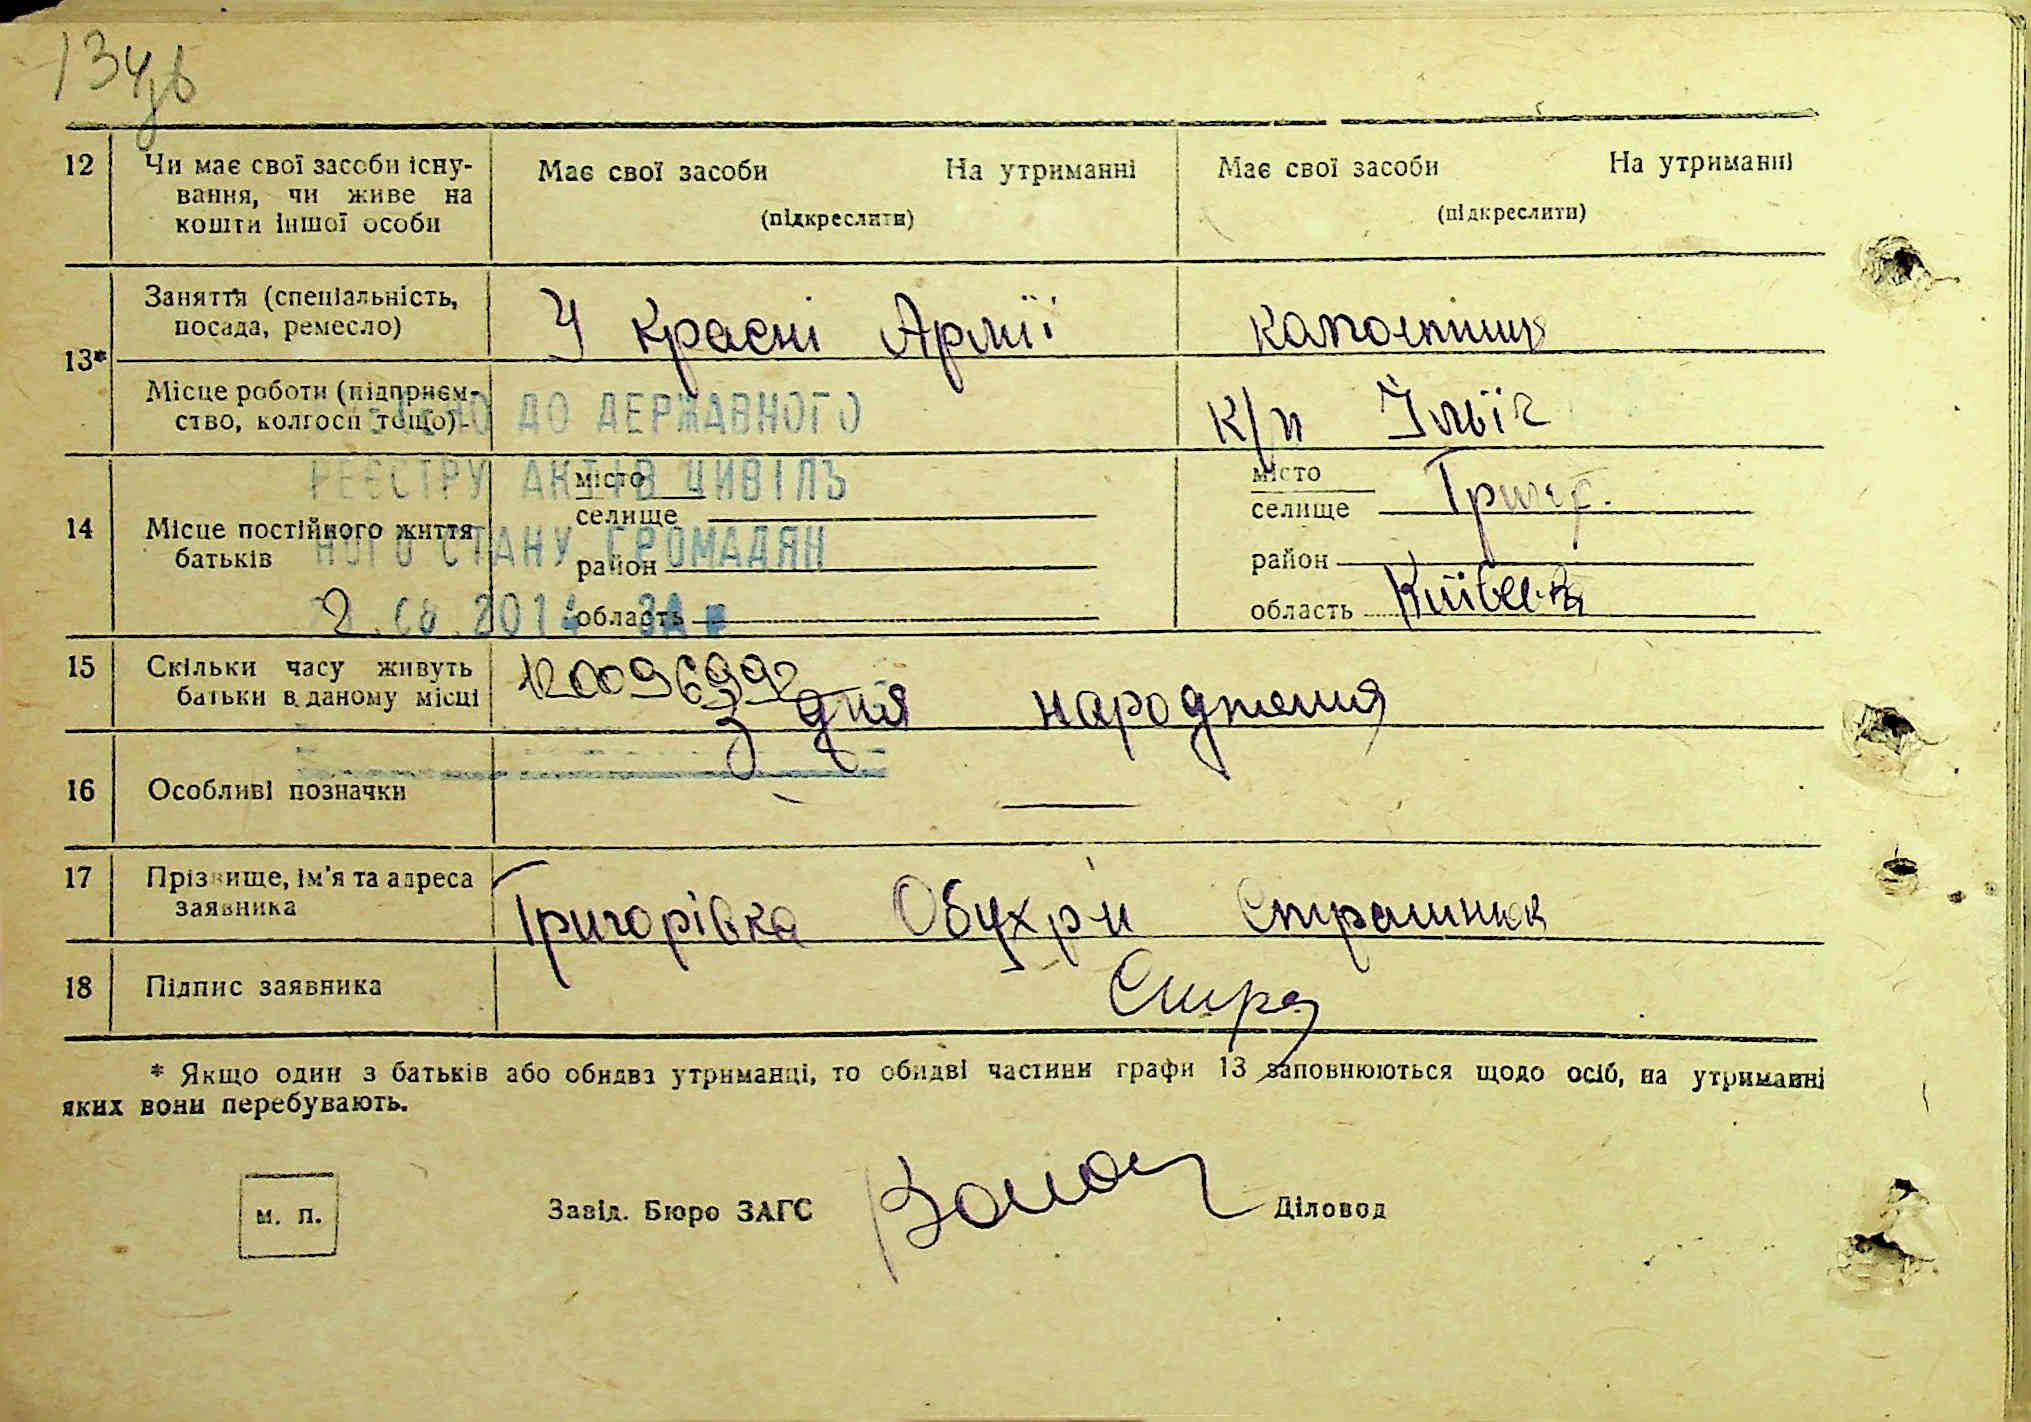 134
12 Чи має свої засоби існу- Має свої засоби На утриманні Має свої засоби На утриманні
вання, чи живе на (підкреслити) (підкреслити)
кошти іншої особи
Заняття (спеціальність, У красні Армії
посада, ремесло)
13*
Місце роботи (підприєм- ДО ДЕРЖАВНОГО
ство, колгосп тощо). к/г Ілліч
РЕЄСТРУ АКТІВ ЦИВІЛЬ
місто місто
селище селище Григ.
14 Місце постійного життя
НОГО СТАНУ ГРОМАДЯН
батьків район район
область область Київськ
15 Скільки часу живуть 120096992
батьки в даному місці З дня народження
16 Особливі позначки —
17 Прізвище, ім'я та адреса
заявника Григорівка Обухр-н
18 Підпис заявника
* Якщо один з батьків або обидва утриманці, то обидві частини графи 13 заповнюються щодо осіб, на утриманні
яких вони перебувають.
м. п. Завід. Бюро ЗАГС Діловод